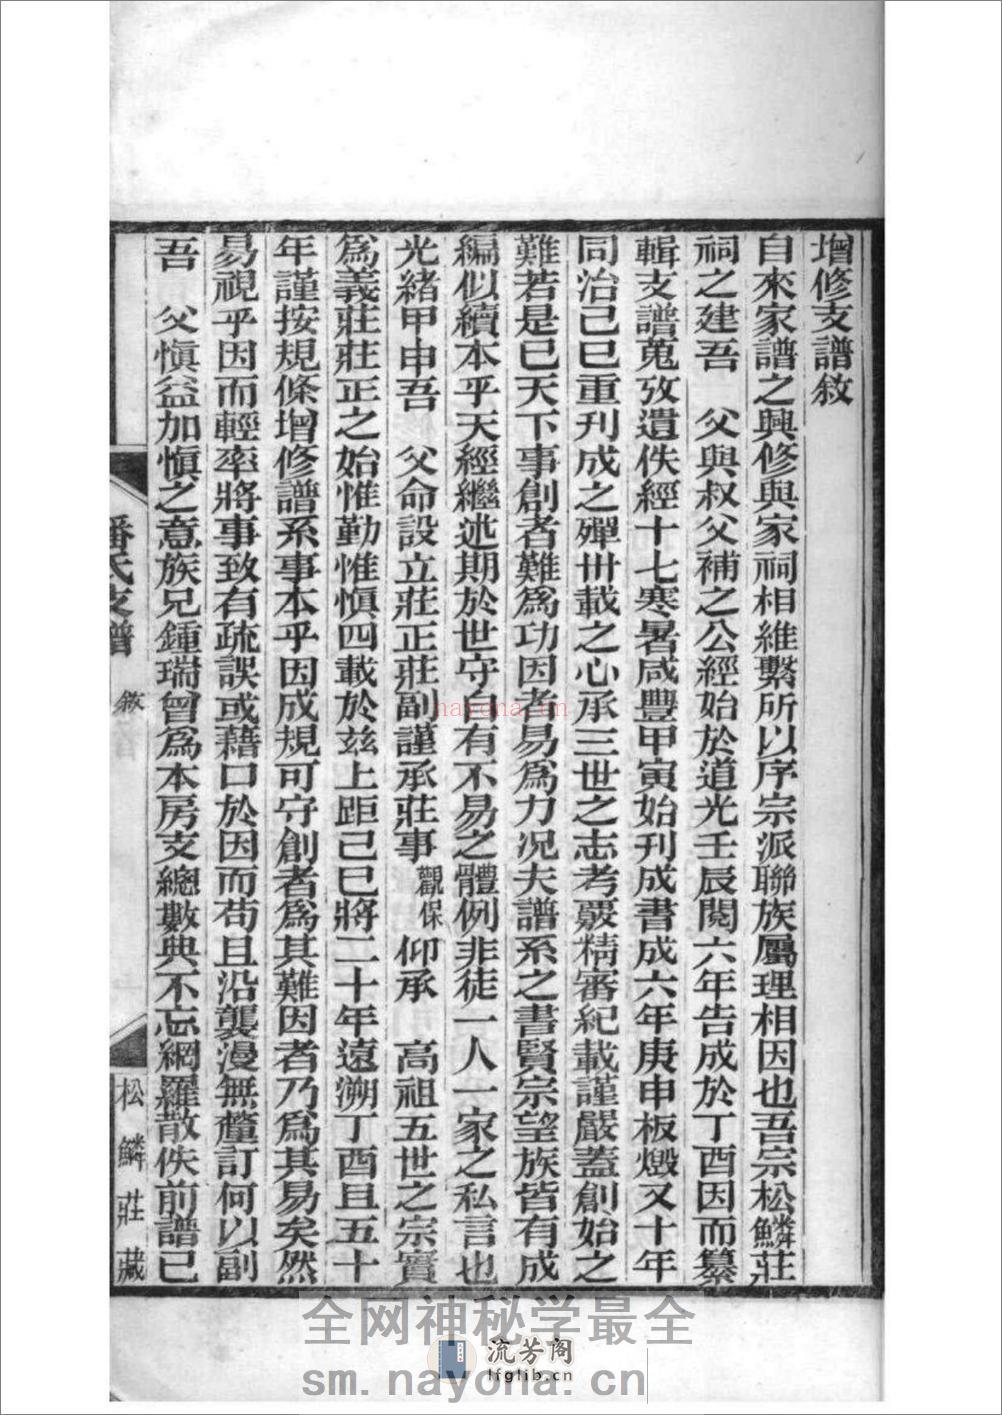 增修支譜敘
自來家譜之興修與家祠相維繫所以序宗派聯族屬理相因也吾宗松鱗莊
祠之建吾　父與叔父補之公經始於道光壬辰閱六年告成於丁酉因而纂
輯支譜蒐攷遺佚經十七寒暑咸豐甲寅始刊成書成六年庚申板燬又十年
同治己巳重刊成之殫卅載之心承三世之志考覈精審紀載謹嚴蓋創始之
難若是已天下事創者難爲功因者易爲力况夫譜系之書賢宗望族皆有成
編似續本乎天經繼述期於世守自有不易之體例非徒一人一家之私言也
光緒甲申吾　父命設立莊正莊副謹承莊事觀保仰承　高祖五世之宗實
爲義莊莊正之始惟勤惟愼四載於玆上距己巳將二十年遠溯丁酉且五十
年謹按規條增修譜系事本乎因成規可守創者爲其難因者乃爲其易矣然
易視乎因而輕率將事致有疏誤或藉口於因而苟且沿襲漫無釐訂何以副
吾　父愼益加愼之意族兄鍾瑞曾爲本房支總數典不忘網羅散佚前譜已
潘氏支譜　敘
松鱗莊藏
nayona.cn
全网神秘学最全
流芳阁
lfglib.cn
sm.nayona.cn